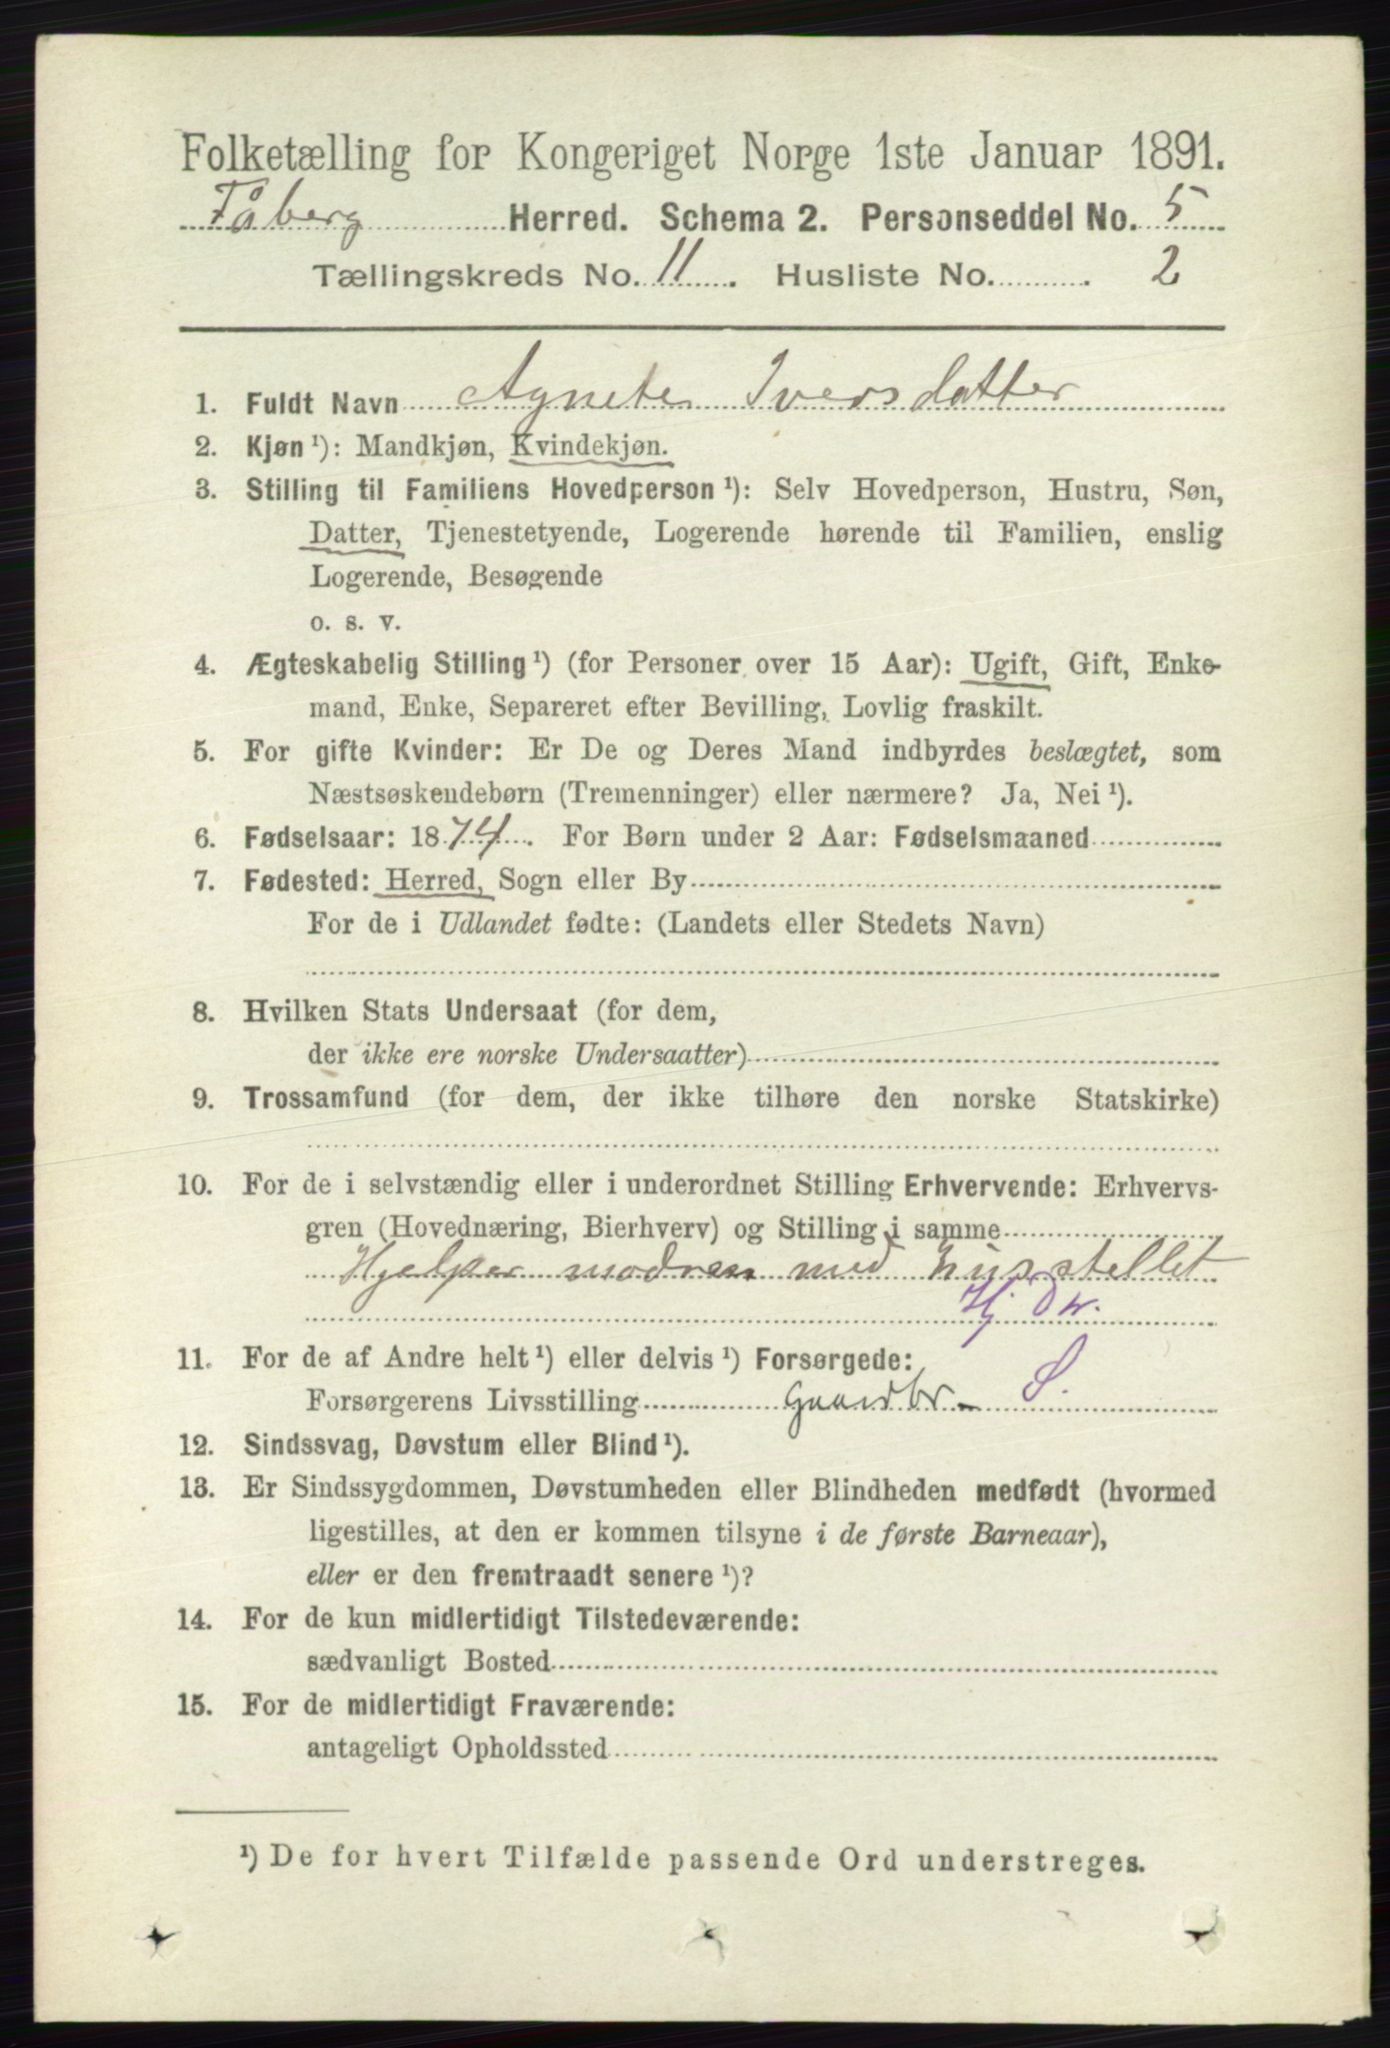 Folketælling for Kongeriget Norge 1ste Januar 1891.
Fåberg Herred. Schema 2. Personseddel No. 5
Tællingskreds No. 11. Husliste No. 2
1. Fuldt Navn Agnete Iversdatter
2. Kjøn ¹): Mandkjøn, Kvindekjøn.
3. Stilling til Familiens Hovedperson ¹): Selv Hovedperson, Hustru, Søn,
Datter, Tjenestetyende, Logerende hørende til Familien, enslig
Logerende, Besøgende
o. s. v.
4. Ægteskabelig Stilling ¹) (for Personer over 15 Aar): Ugift, Gift, Enke-
mand, Enke, Separeret efter Bevilling, Lovlig fraskilt.
5. For gifte Kvinder: Er De og Deres Mand indbyrdes beslægtet, som
Næstsøskendebørn (Tremenninger) eller nærmere? Ja, Nei ¹).
6. Fødselsaar: 1874. For Børn under 2 Aar: Fødselsmaaned
7. Fødested: Herred, Sogn eller By
For de i Udlandet fødte: (Landets eller Stedets Navn)
8. Hvilken Stats Undersaat (for dem,
der ikke ere norske Undersaatter)
9. Trossamfund (for dem, der ikke tilhøre den norske Statskirke)
10. For de i selvstændig eller i underordnet Stilling Erhvervende: Erhvervs-
gren (Hovednæring, Bierhverv) og Stilling i samme
Hjelper modren med husstellet
Hj Dr.
11. For de af Andre helt ¹) eller delvis ¹) Forsørgede:
Forsørgerens Livsstilling Gaardbr - S.
12. Sindssvag, Døvstum eller Blind ¹).
13. Er Sindssygdommen, Døvstumheden eller Blindheden medfødt (hvormed
ligestilles, at den er kommen tilsyne i de første Barneaar),
eller er den fremtraadt senere ¹)?
14. For de kun midlertidigt Tilstedeværende:
sædvanligt Bosted
15. For de midlertidigt Fraværende:
antageligt Opholdssted
¹) De for hvert Tilfælde passende Ord understreges.